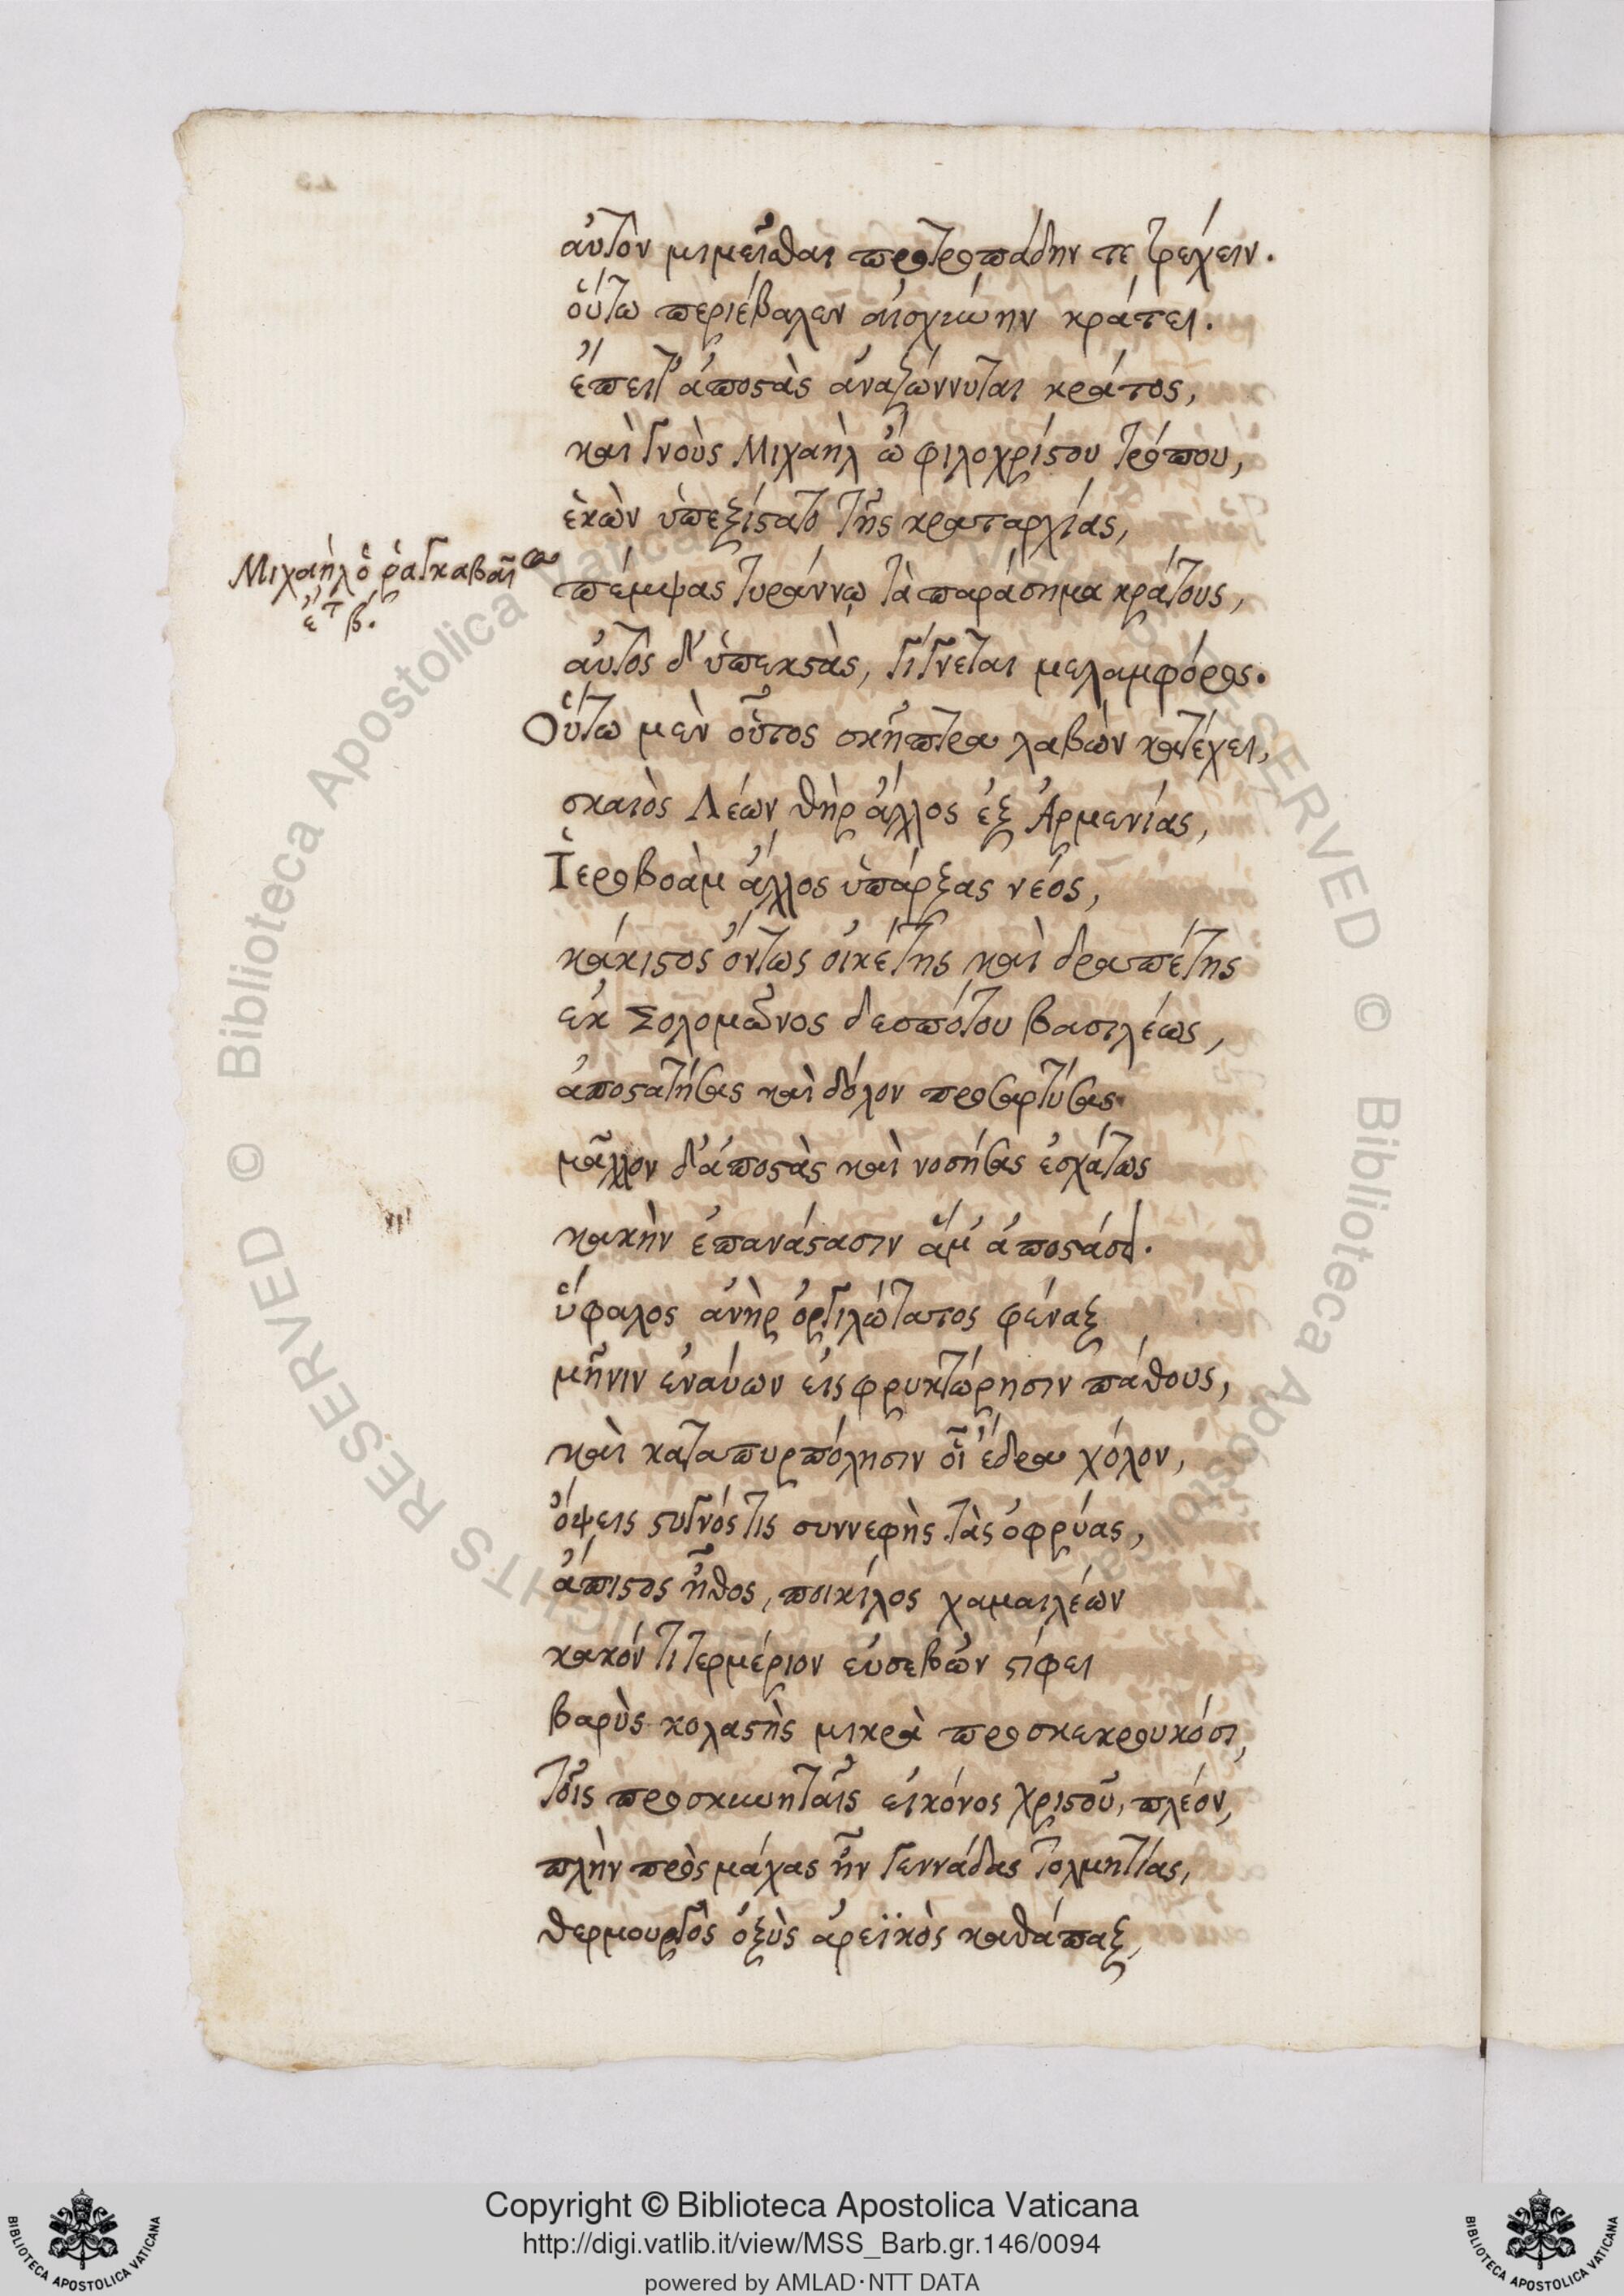 αὐτὸν μιμεῖσθαι προτροπάδην τε τρέχειν.
οὕτω περιέβαλεν αἰσχύνην κράτει.
ἔπειτ' ἀποστὰς ἀναζώννυται κράτος,
καὶ γνοὺς Μιχαὴλ ὢ φιλοχρίστου τρόπου,
ἑκὼν ὑπεξίστατο τῆς κραταρχίας,
Μιχαὴλ ὁ ῥαγκαβαῖ
ἔτ β.
πέμψας τυράννῳ τὰ παράσημα κράτους,
αὐτὸς δ' ὑπεκστὰς, γίγνεται μελαμφόρος.
Οὕτω μὲν οὗτος σκῆπτρα λαβὼν κατέχει,
σκαιὸς Λέων θὴρ ἄλλος ἐξ Ἀρμενίας,
Ἱεροβοὰμ ἄλλος ὑπάρξας νέος,
κάκιστος ὄντως οἰκέτης καὶ δραπέτης
ἐκ Σολομῶνος δεσπότου βασιλέως,
ἀποστατήσας καὶ δόλον προσαρτύσας
μᾶλλον δ' ἀποστὰς καὶ νοσήσας ἐσχάτως
κακὴν ἐπανάστασιν ἅμ' ἀποστάσει.
ὕφαλος ἀνὴρ ὀργιλώτατος φέναξ
μῆνιν ἐναύων εἰς φρυκτώρησιν πάθους,
καὶ καταπυρπόλησιν οἷ ἕδρα χόλον,
ὄψεις στυγνός τις συννεφὴς τὰς ὀφρύας,
ἄπιστος ἦθος, ποικίλος χαμαιλέων
κακόν τι τερμέριον εὐσεβῶν στίφει
βαρὺς κολαστὴς μικρὰ προσκεκρουκόσι,
τοῖς προσκυνηταῖς εἰκόνος χριστοῦ, πλέον,
πλὴν πρὸς μάχας ἦν γεννάδας τολμητίας,
θερμουργὸς ὀξὺς ἀρεϊκὸς καθάπαξ,
Copyright © Biblioteca Apostolica Vaticana
http://digi.vatlib.it/view/MSS_Barb.gr.146/0094
powered by AMLAD·NTT DATA
BIBLIOTECA APOSTOLICA VATICANA
BIBLIOTECA APOSTOLICA VATICANA